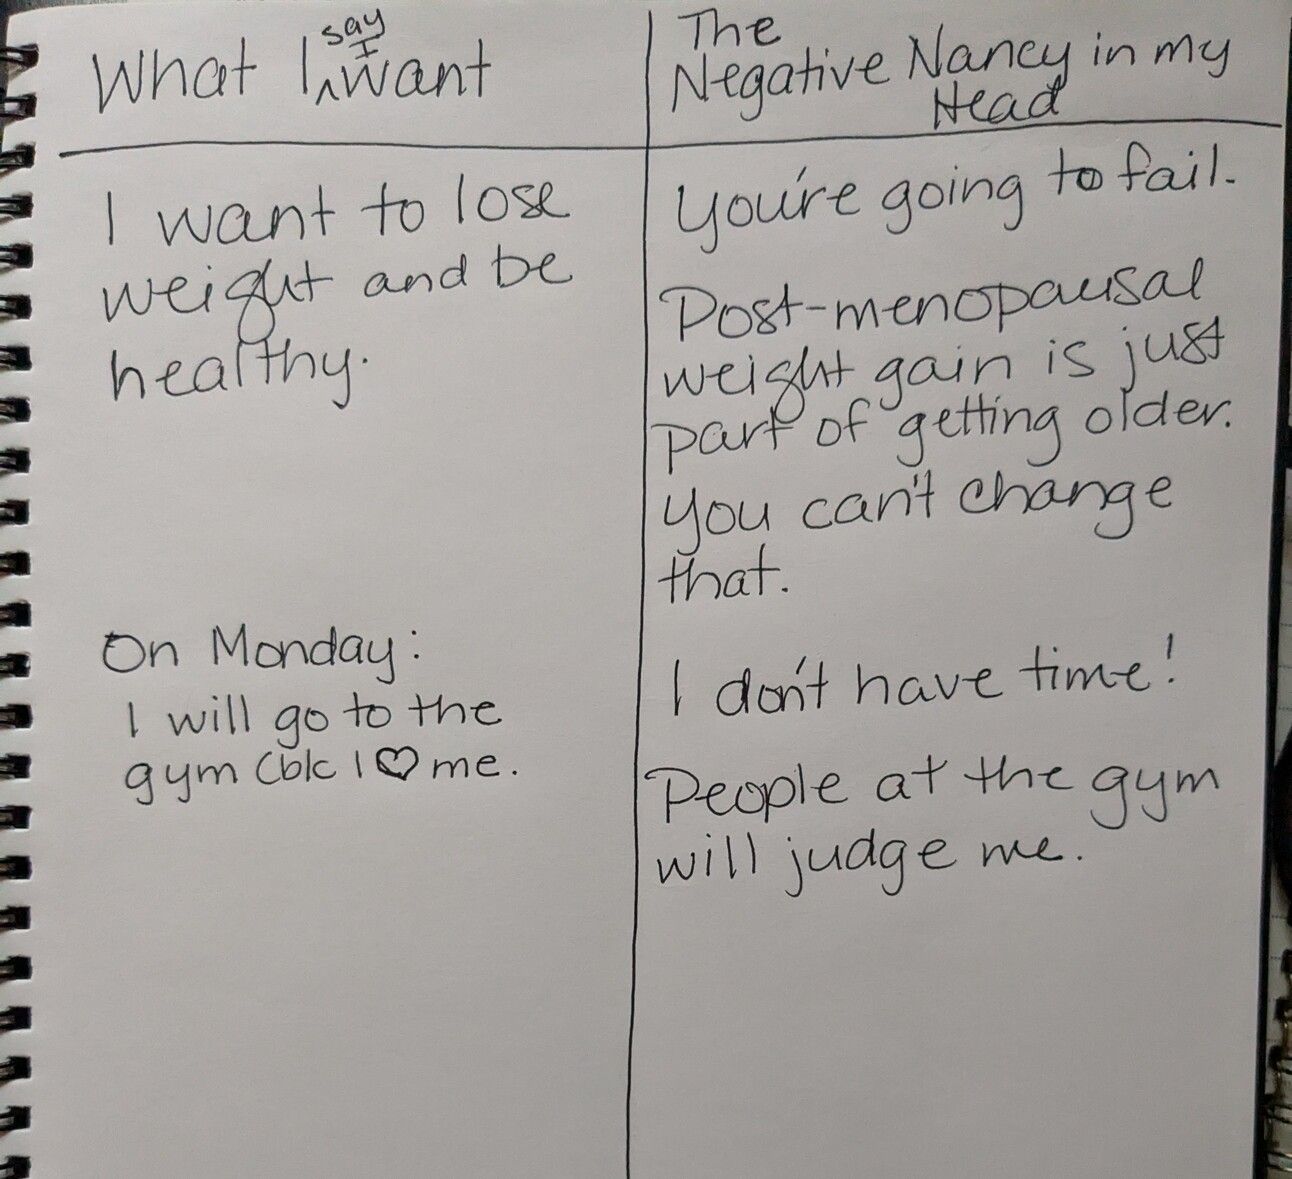 What I say I want
I want to lose
weight and be
healthy.
On Monday:
I will go to the
gym cblc I ♡ me.
The
Negative Nancy in my
Head
You're going to fail.
Post-menopausal
weight gain is just
part of getting older.
You can't change
that.
I don't have time!
People at the gym
will judge me.